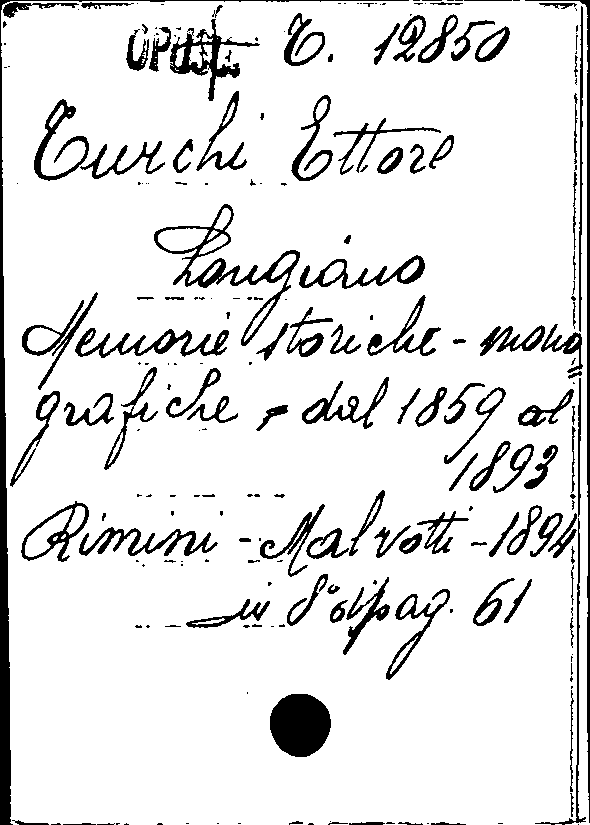 OPUSC. T. 12850
Turchi Ettore
Longiano
Memorie storiche - mono=
grafiche - dal 1859 al
1893
Rimini - Malvolti - 1894
in 8° di pag. 61